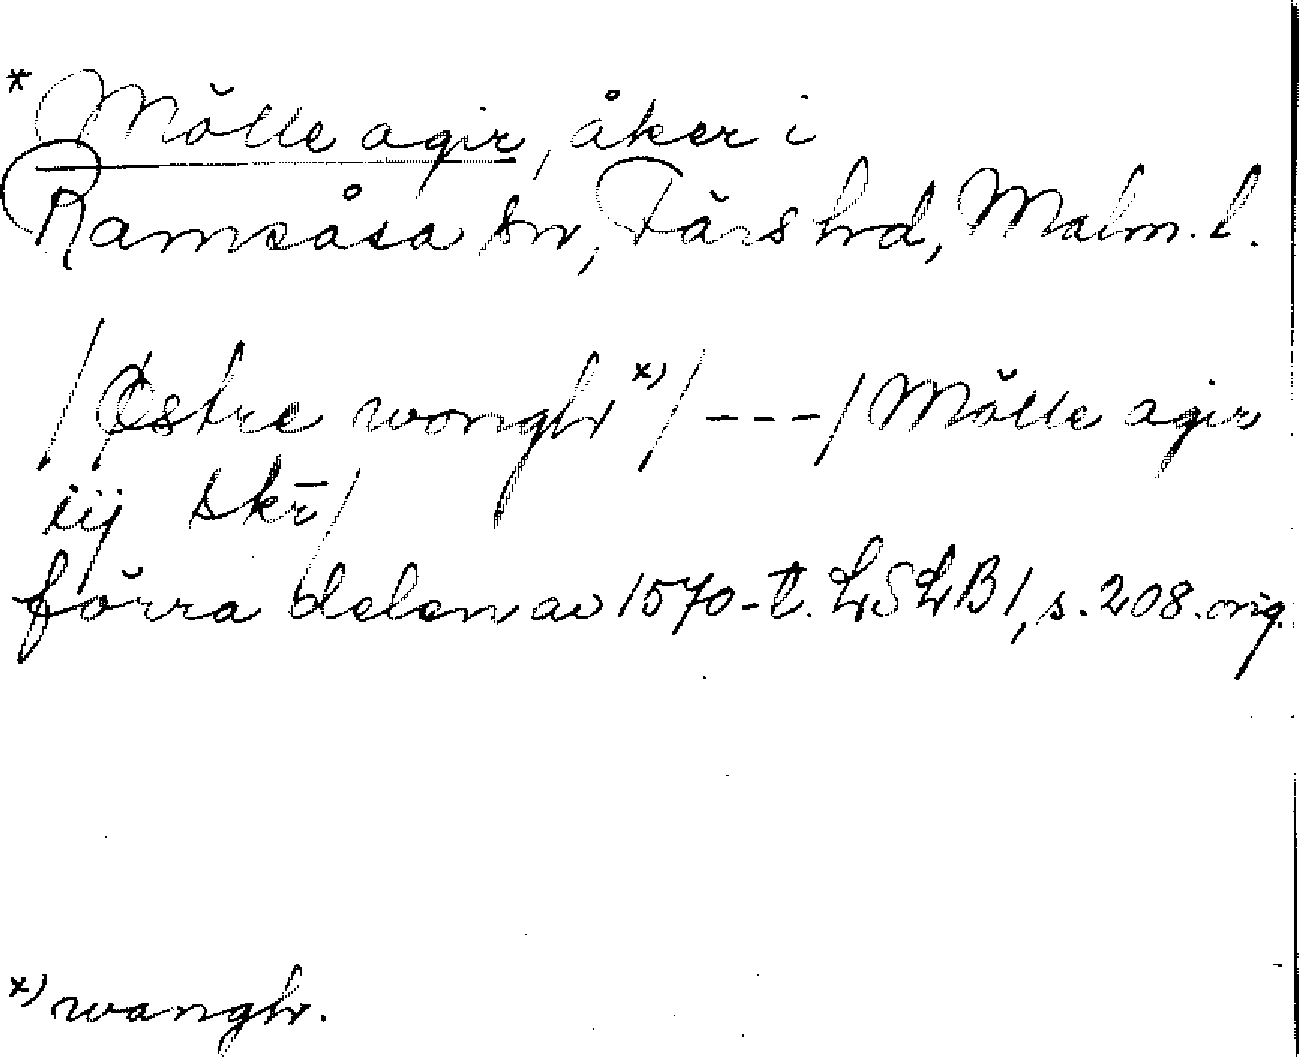 * Mölle agir, åker i
Ramsåsa sn, Färs hd, Malm. l.
/Østre wongh x)/ - - - / Mölle agir
iij skr̄/
förra delen av 1570-t. LSLB 1, s. 208. orig.
x) wangh.